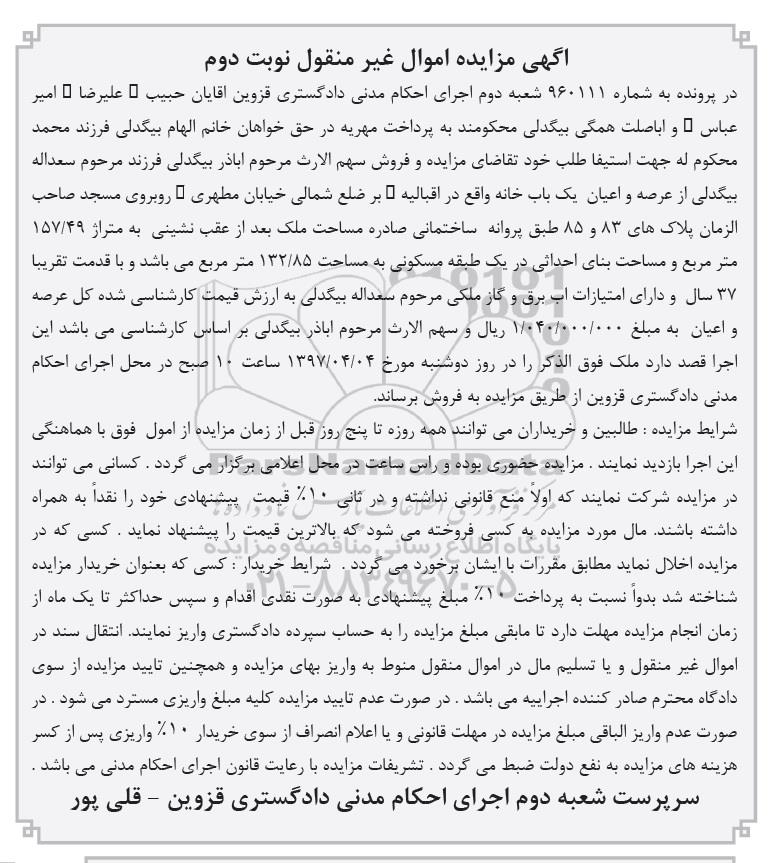 اگهی مزایده اموال غیر منقول نوبت دوم
در پرونده به شماره ۹۶۰۱۱۱ شعبه دوم اجرای احکام مدنی دادگستری قزوین اقایان حبیب ▯ علیرضا ▯ امیر
عباس ▯ و اباصلت همگی بیگدلی محکومند به پرداخت مهریه در حق خواهان خانم الهام بیگدلی فرزند محمد
محکوم له جهت استیفا طلب خود تقاضای مزایده و فروش سهم الارث مرحوم اباذر بیگدلی فرزند مرحوم سعداله
بیگدلی از عرصه و اعیان یک باب خانه واقع در اقبالیه ▯ بر ضلع شمالی خیابان مطهری ▯ روبروی مسجد صاحب
الزمان پلاک های ۸۳ و ۸۵ طبق پروانه ساختمانی صادره مساحت ملک بعد از عقب نشینی به متراژ ۱۵۷/۴۹
متر مربع و مساحت بنای احداثی در یک طبقه مسکونی به مساحت ۱۳۲/۸۵ متر مربع می باشد و با قدمت تقریبا
۳۷ سال و دارای امتیازات اب برق و گاز ملکی مرحوم سعداله بیگدلی به ارزش قیمت کارشناسی شده کل عرصه
و اعیان به مبلغ ۱/۰۴۰/۰۰۰/۰۰۰ ریال و سهم الارث مرحوم اباذر بیگدلی بر اساس کارشناسی می باشد این
اجرا قصد دارد ملک فوق الذکر را در روز دوشنبه مورخ ۱۳۹۷/۰۴/۰۴ ساعت ۱۰ صبح در محل اجرای احکام
مدنی دادگستری قزوین از طریق مزایده به فروش برساند.
شرایط مزایده : طالبین و خریداران می توانند همه روزه تا پنج روز قبل از زمان مزایده از امول فوق با هماهنگی
این اجرا بازدید نمایند . مزایده حضوری بوده و راس ساعت در محل اعلامی برگزار می گردد . کسانی می توانند
در مزایده شرکت نمایند که اولاً منع قانونی نداشته و در ثانی ۱۰٪ قیمت پیشنهادی خود را نقداً به همراه
داشته باشند. مال مورد مزایده به کسی فروخته می شود که بالاترین قیمت را پیشنهاد نماید . کسی که در
مزایده اخلال نماید مطابق مقررات با ایشان برخورد می گردد . شرایط خریدار : کسی که بعنوان خریدار مزایده
شناخته شد بدواً نسبت به پرداخت ۱۰٪ مبلغ پیشنهادی به صورت نقدی اقدام و سپس حداکثر تا یک ماه از
زمان انجام مزایده مهلت دارد تا مابقی مبلغ مزایده را به حساب سپرده دادگستری واریز نمایند. انتقال سند در
اموال غیر منقول و یا تسلیم مال در اموال منقول منوط به واریز بهای مزایده و همچنین تایید مزایده از سوی
دادگاه محترم صادر کننده اجراییه می باشد . در صورت عدم تایید مزایده کلیه مبلغ واریزی مسترد می شود . در
صورت عدم واریز الباقی مبلغ مزایده در مهلت قانونی و یا اعلام انصراف از سوی خریدار ۱۰٪ واریزی پس از کسر
هزینه های مزایده به نفع دولت ضبط می گردد . تشریفات مزایده با رعایت قانون اجرای احکام مدنی می باشد .
سرپرست شعبه دوم اجرای احکام مدنی دادگستری قزوین - قلی پور
ParsNamadData
پایگاه اطلاع رسانی مناقصه و مزایده
۰۲۱-۸۸۳۴۹۶۷۰-۵